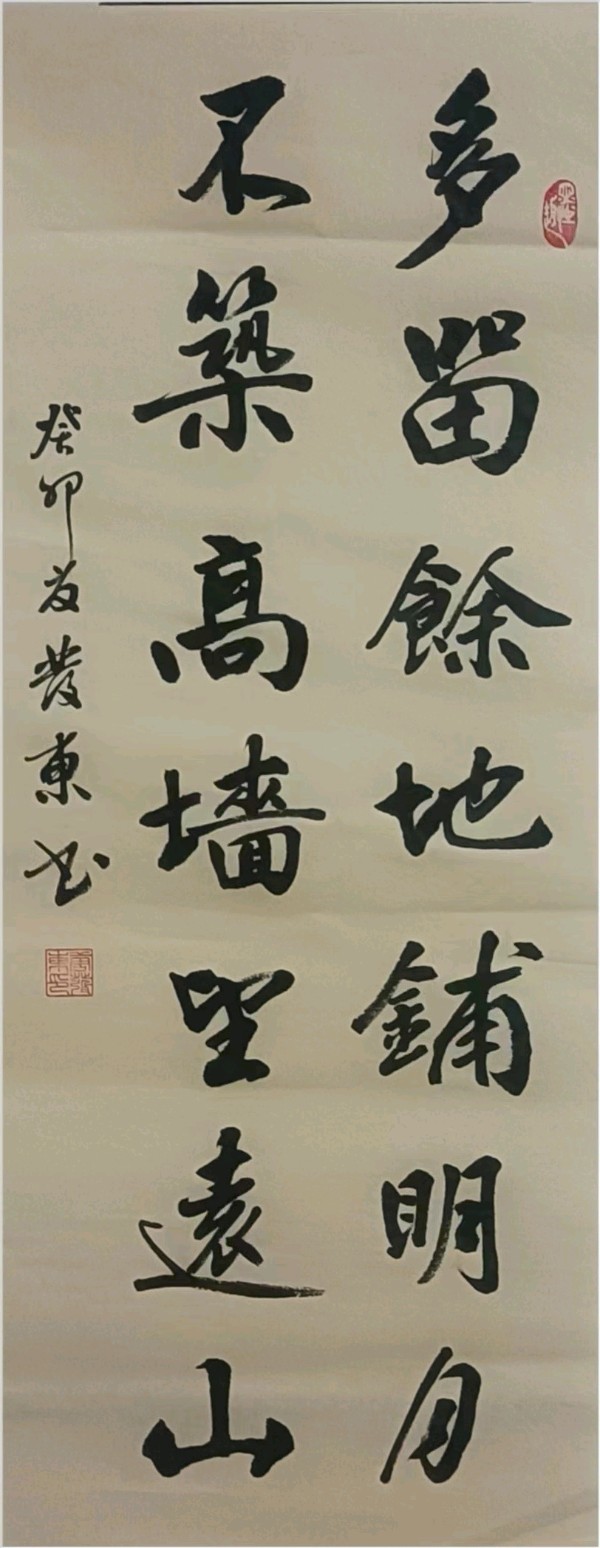 多留餘地鋪明月
不築高牆望遠山
癸卯發東书